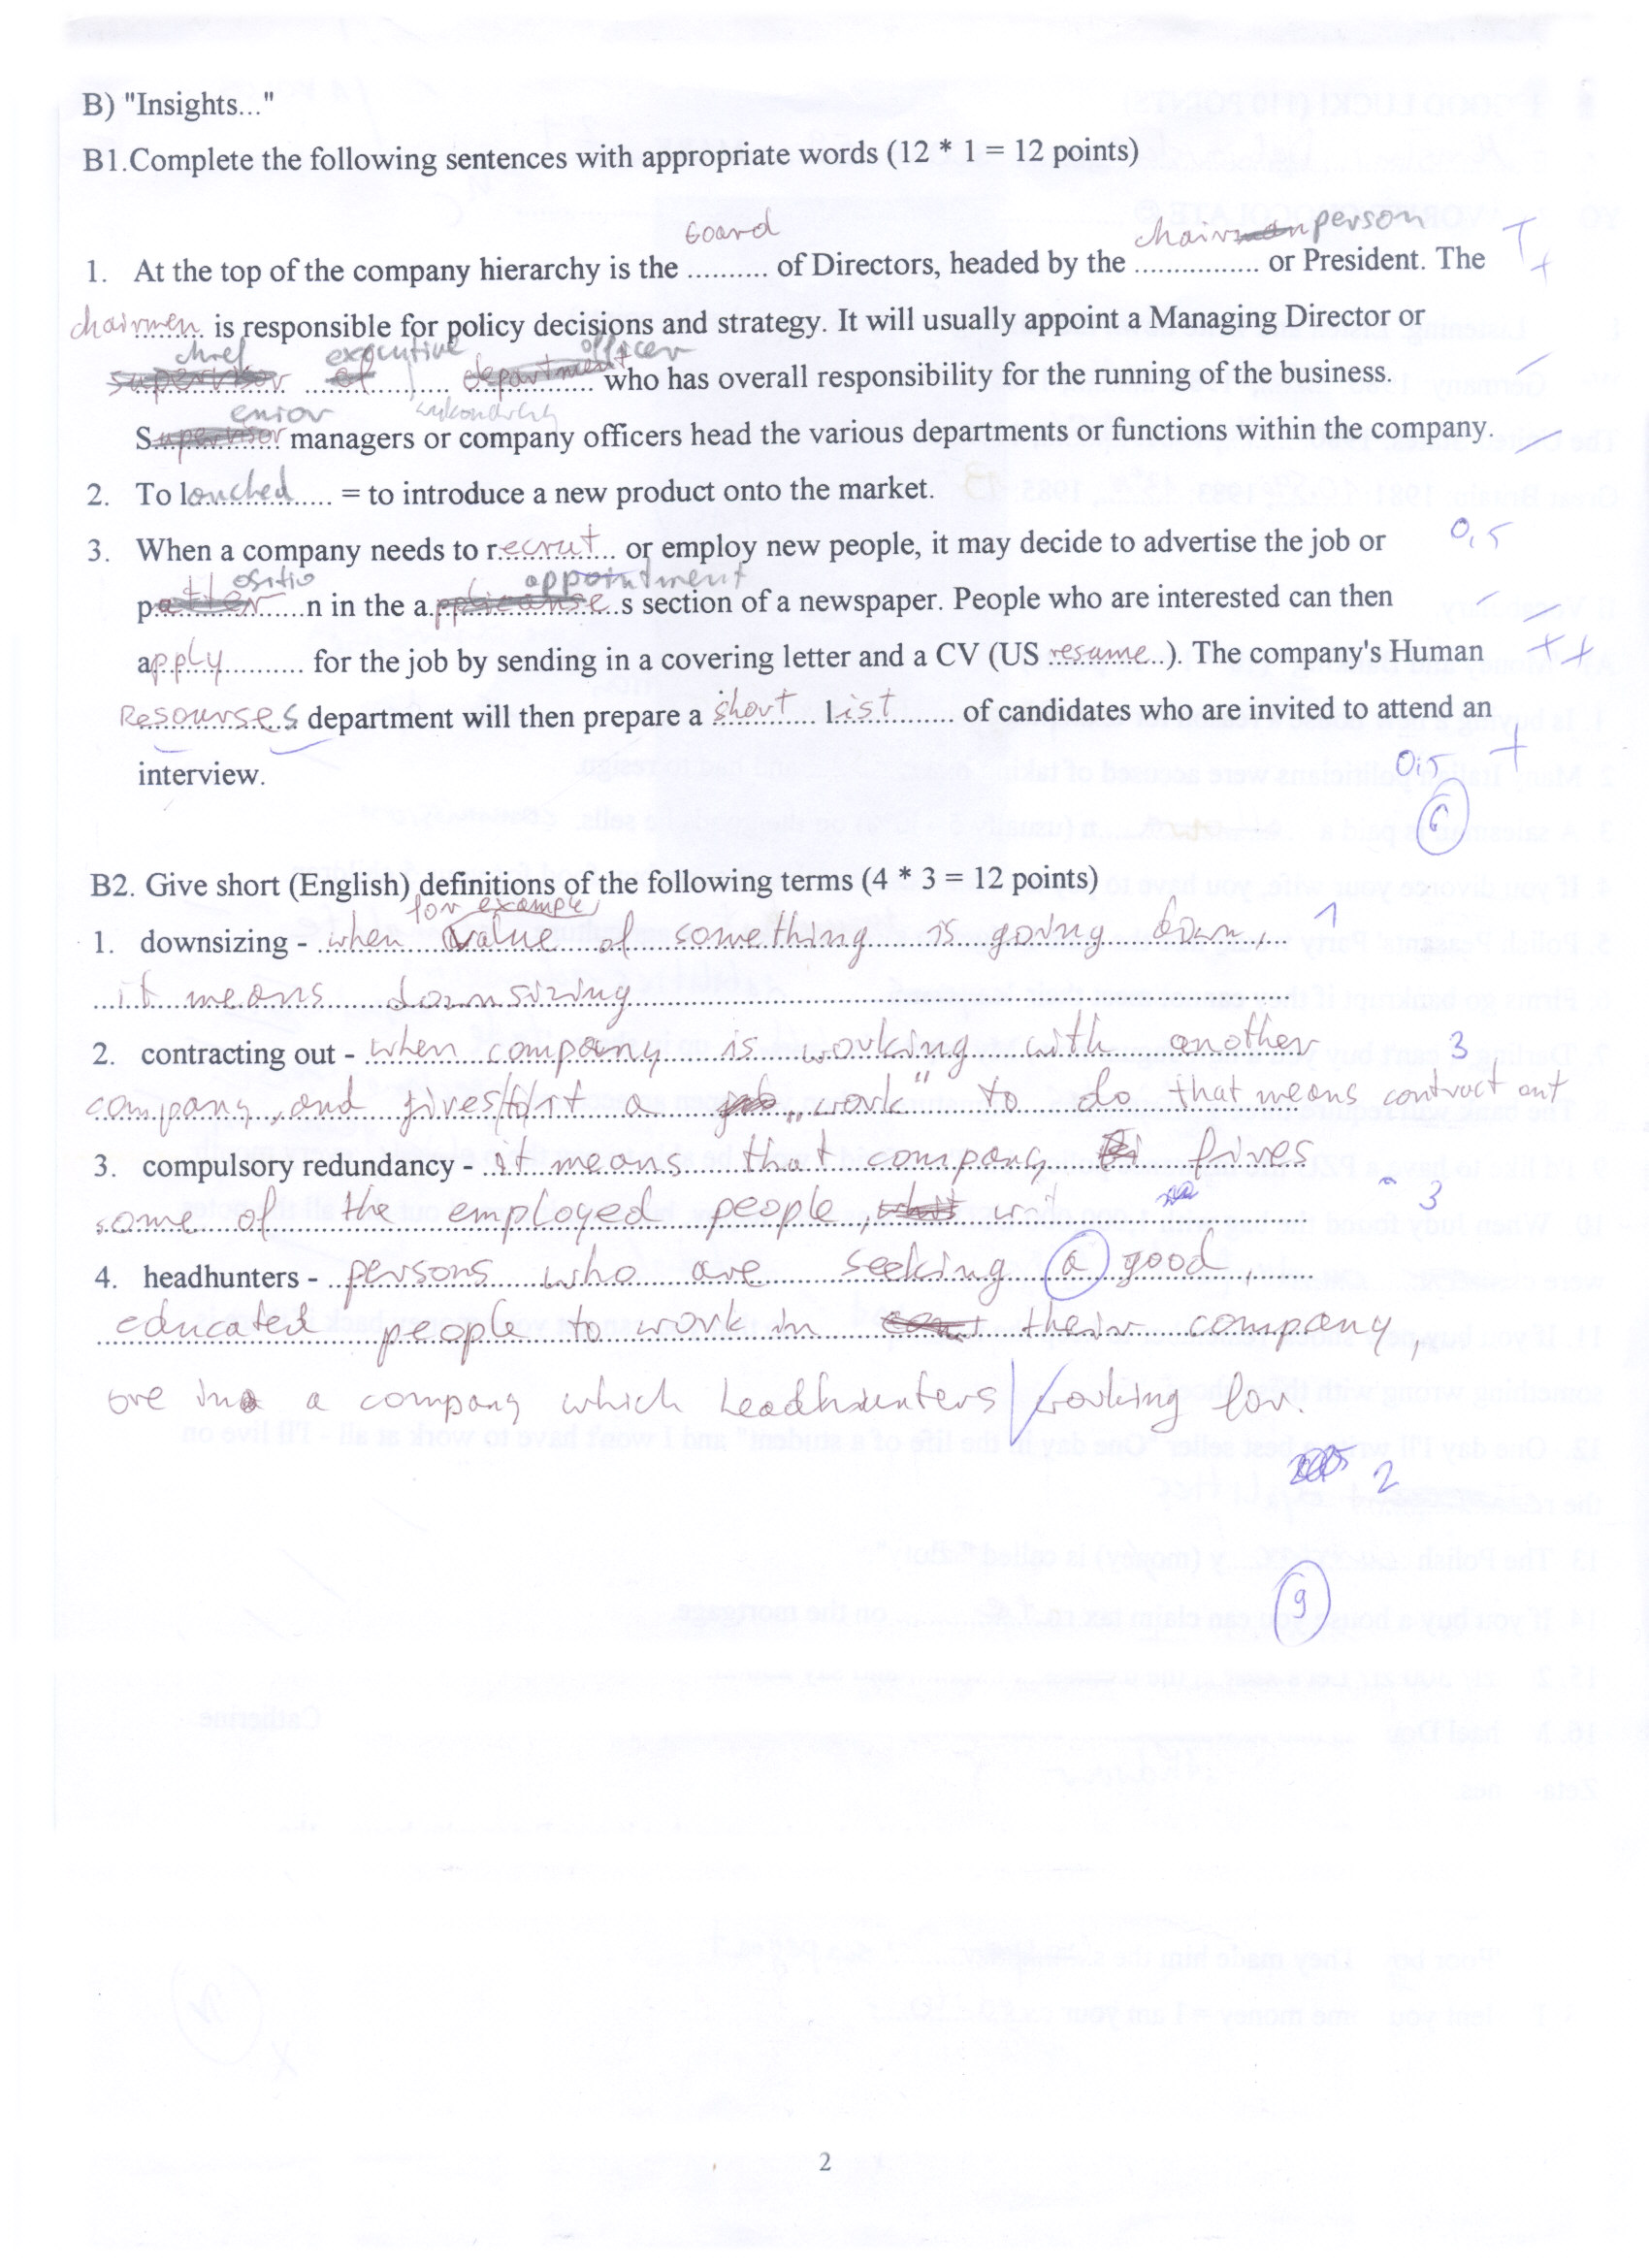 B) "Insights..."
B1.Complete the following sentences with appropriate words (12 * 1 = 12 points)
board chairmen person
1. At the top of the company hierarchy is the .......... of Directors, headed by the ............... or President. The
chairmen is responsible for policy decisions and strategy. It will usually appoint a Managing Director or
chief executive officer
supervisor of department who has overall responsibility for the running of the business.
enior
Supervisor managers or company officers head the various departments or functions within the company.
2. To lounched..... = to introduce a new product onto the market.
3. When a company needs to recrut... or employ new people, it may decide to advertise the job or 0,5
ositio appointment
p.....n in the a.....s section of a newspaper. People who are interested can then
apply........... for the job by sending in a covering letter and a CV (US resume..). The company's Human
Resourses department will then prepare a short..... list......... of candidates who are invited to attend an
interview. 0,5
6
B2. Give short (English) definitions of the following terms (4 * 3 = 12 points)
for example,
1. downsizing - when value of something is going down, 1
it means downsizing
2. contracting out - when company is working with another 3
company, and gives it a job "work" to do that means contract out
3. compulsory redundancy - it means that company fires
some of the employed people, 3
4. headhunters - persons who are seeking a good,
educated people to work in their company,
ore in a company which headhunters working for.
2
9
2